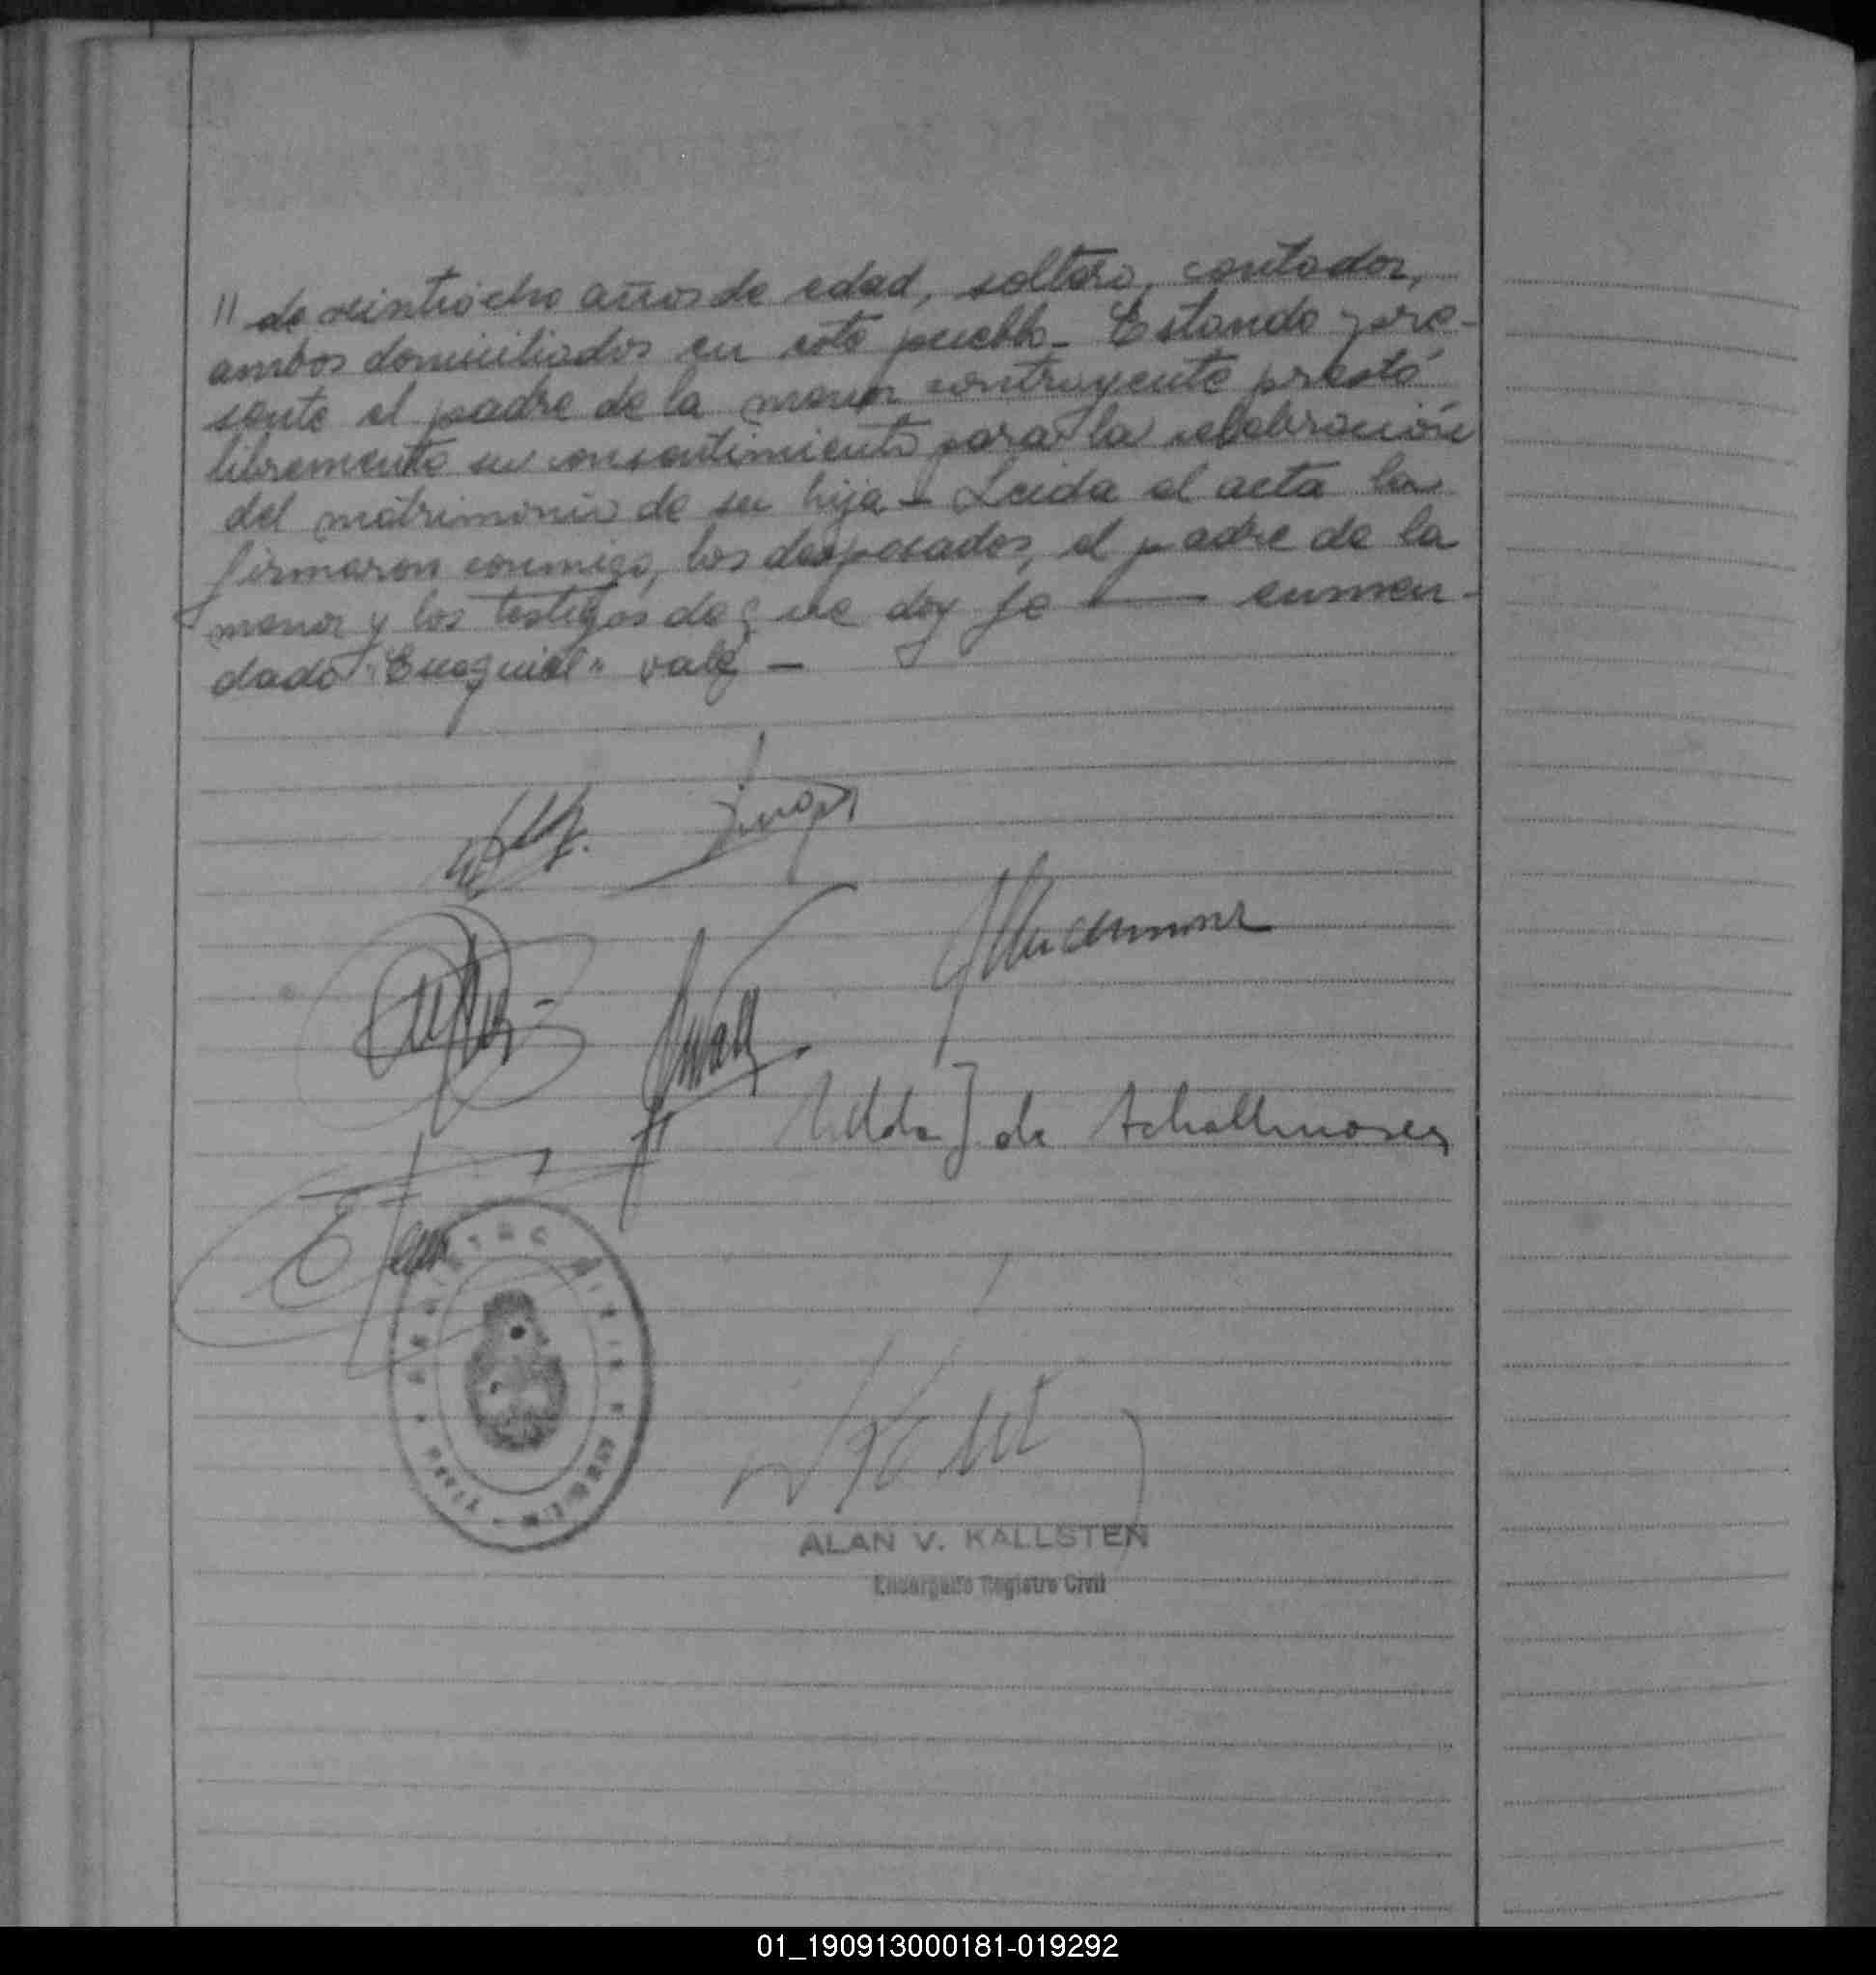 // de veintiocho años de edad, soltero, contador,
ambos domiciliados en este pueblo_ Estando pre-
sente el padre de la menor contrayente prestó
libremente su consentimiento para la celebración
del matrimonio de su hija - Leida el acta la
firmaron conmigo, los desposados, el padre de la
menor y los testigos de que doy fe —— enmen-
dado vale —
Hilda J. de Schallmoser
ALAN V. KALLSTEN
Encargado Registro Civil
01_190913000181-019292